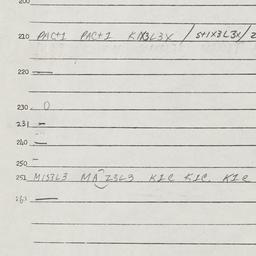 200
210 PAC+1 PAC+1 K1X3L3X / S+1X3L3X/2
220
230 0
231
240
250
251 M1S3L3 MA Z3L3 K1C K1C, K1C
263